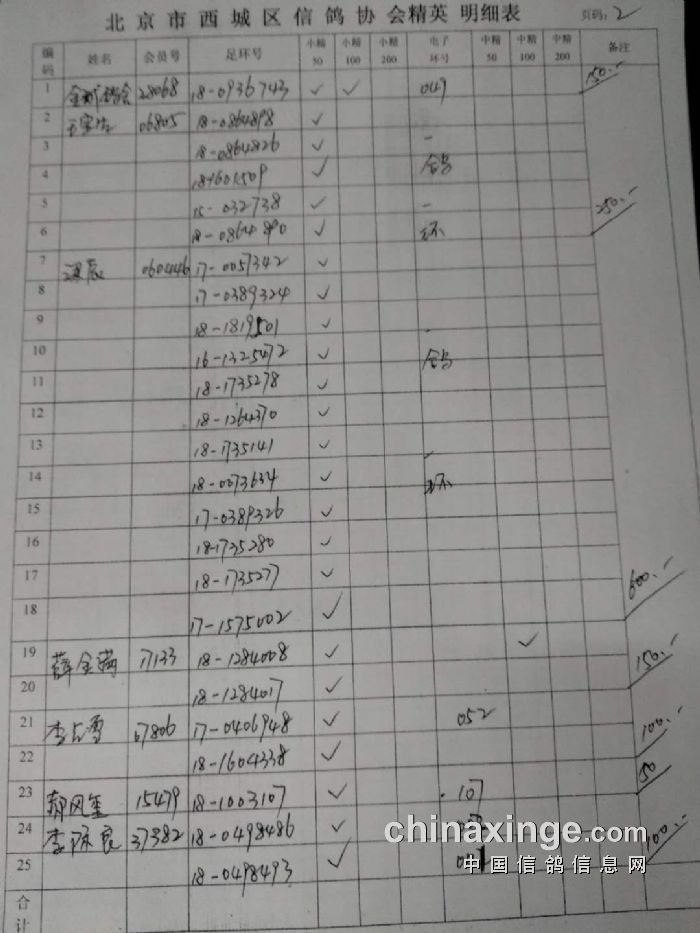 北京市西城区信鸽协会精英 明细表 页码: 2
编码 姓名 会员号 足环号 小精50 小精100 小精200 电子环号 中精50 中精100 中精200 备注
1 28068 18-0936743 ✓ ✓ 049 150.-
2 06805 18-0864898 ✓
3 18-0864826 ✓ -
4 18-1601509 ✓ 鸽
5 15-032738 ✓ -
6 18-0864890 ✓ 环 250.-
7 060446 17-0057342 ✓
8 17-0389324 ✓
9 18-1819501 ✓ -
10 16-1325472 ✓ 鸽
11 18-1735278 ✓
12 18-1264370 ✓
13 18-1735141 ✓ -
14 18-0073634 ✓ 环
15 17-0389326 ✓
16 18-1735280 ✓
17 18-1735277 ✓
18 17-1575002 ✓ 600.-
19 薛金瑞 17133 18-1284008 ✓ ✓
20 18-1284017 ✓ 150.-
21 07806 17-0406948 ✓ 052
22 18-1604338 ✓ 100.-
23 郝凤玺 15479 18-1003107 ✓ 107 50
24 37382 18-0498486 ✓
25 18-0498493 ✓ 100.-
合计
chinaxinge.com
中国信鸽信息网